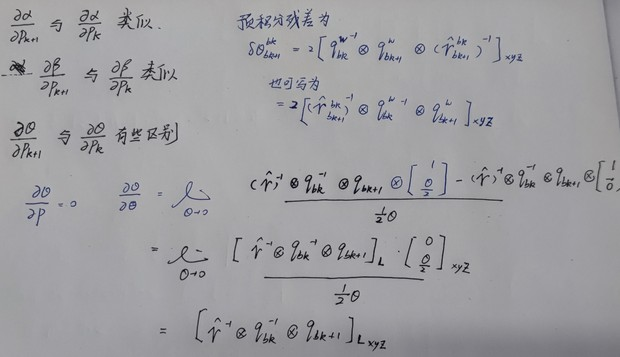 ∂α/∂P_{k+1} 与 ∂α/∂P_k 类似.
∂β/∂P_{k+1} 与 ∂β/∂P_k 类似
∂θ/∂P_{k+1} 与 ∂θ/∂P_k 有些区别
预积分残差为
δθ^{bk}_{bk+1} = 2[q^{w^{-1}}_{bk} ⊗ q^{w}_{bk+1} ⊗ (r̂^{bk}_{bk+1})^{-1}]_{xyz}
也可写为
= 2[(r̂^{bk}_{bk+1})^{-1} ⊗ q^{w^{-1}}_{bk} ⊗ q^{w}_{bk+1}]_{xyZ}
∂θ/∂P = 0 ∂θ/∂θ = θ→0 (r̂)^{-1} ⊗ q_{bk}^{-1} ⊗ q_{bk+1} ⊗ [1 θ/2] - (r̂)^{-1} ⊗ q_{bk}^{-1} ⊗ q_{bk+1} ⊗ [1 0] / ½θ
= θ→0 [r̂^{-1} ⊗ q_{bk}^{-1} ⊗ q_{bk+1}]_L · [0 θ/2]_{xyZ} / ½θ
= [r̂^{-1} ⊗ q_{bk}^{-1} ⊗ q_{bk+1}]_{L xyZ}